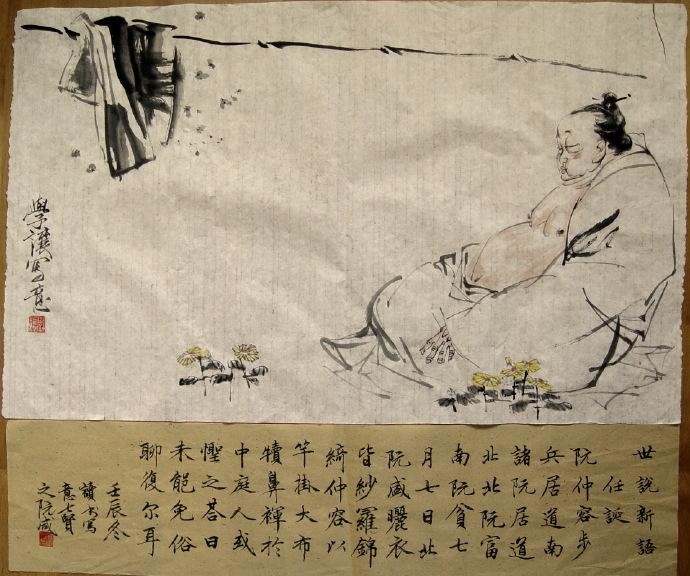 學讓写意
世說新語
任誕
阮仲容步
兵居道南
諸阮居道
北北阮富
南阮貧七
月七日北
阮咸曬衣
皆紗羅錦
綺仲容以
竿掛大布
犢鼻褌於
中庭人或
怪之荅曰
未能免俗
聊復尔耳
壬辰冬
讀书写
意七賢
之阮咸